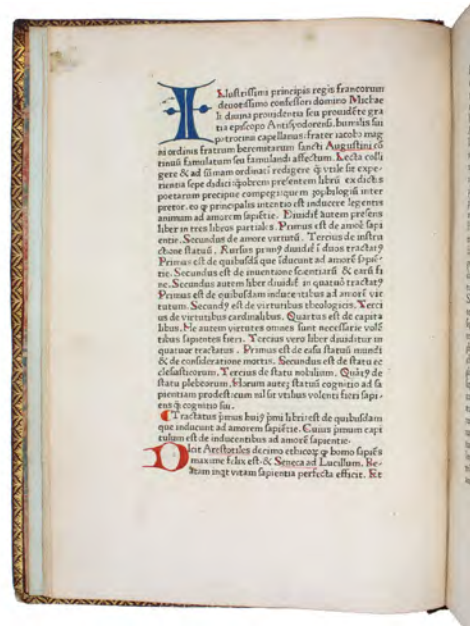 Illustrissimi principis regis francorum
deuotissimo confessori domino Michae
li diuina prouidentia seu prouidẽte gra
tia episcopo Antisyodorensi. humilis sui
patrocinii capellanus: frater iacobꝰ mag
ni ordinis fratrum heremitarum sancti Augustini cõ
tinuũ famulatum seu famulandi affectum. Lecta colli
gere & ad sũmam ordinati redigere ꝙ̃ vtile sit expe-
rientia sepe didici: quobrem presentem librũ ex dictis
poetarum precipue compegi: quem sophilogiũ inter
pretor. eo ꝙ principalis intentio est inducere legentis
animum ad amorem sapiẽtie. Diuidit̃ autem presens
liber in tres libros partiales. Primus est de amore sapi
entie. Secundus de amore virtutũ. Tercius de instru
ctione statuũ. Rursus primꝰ diuidit̃ ĩ duos tractatꝰ
Primus est de quibusdã que ĩducunt ad amorẽ sapiẽ-
tie. Secundus est de inuentione scientiarũ & earũ fi
ne. Secundus autem liber diuidit̃ in quatuor tractatꝰ
Primus est de quibusdam inducentibus ad amorẽ vir
tutum. Secundꝰ est de virtutibus theologicis. Terci
us de virtutibus cardinalibus. Quartus est de capita
libus. He autem virtutes omnes sunt necessarie volẽ
tibus sapientes fieri. Tercius vero liber diuiditur in
quatuor tractatus. Primus est de casu statuũ mundi
& de consideratione mortis. Secundus est de statu ec
clesiasticorum. Tercius de statu nobilium. Quartꝰ de
statu plebeorum. Horum autem statuũ cognitio ad sa
pientiam prodest: cum nil sit vtibus volenti fieri sapi-
ens ꝙ̃ cognitio sui.
Tractatus pmus huiꝰ pmi libri: est de quibusdam
que inducunt ad amorem sapiẽtie. Cuius pmum capi
tulum est de inducentibus ad amorẽ sapientie.
Dicit Arestotiles decimo ethicoꝝ ꝙ homo sapiẽs
maxime felix est. & Seneca ad Lucillum. Be-
atam inqt vitam sapientia perfecta efficit. Et